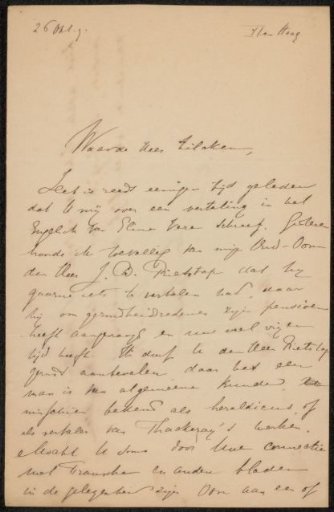 26 Oct. 9.
Den Haag
Waarde Heer Zilcken,
Het is reeds eenigen tijd geleden
dat U mij over een vertaling in het
Engelsch van Eline Vere schreef. Gisteren
hoorde ik toevallig van mijn Oud-Oom
den Heer J. B. Rietstap dat hij
gaarne iets te vertalen had, daar
hij om gezondheidsredenen zijn pensioen
heeft aangevraagd en nu veel vrijen
tijd heeft. Ik durf U den Heer Rietstap
gerust aanbevelen daar het een
man is van algemeene kunde,
misschien bekend als heraldicus, of
als vertaler van Thackeray's werken.
Mocht U soms door Uwe connectie
met Fransche en andere bladen
in de gelegenheid zijn Oom aan een of